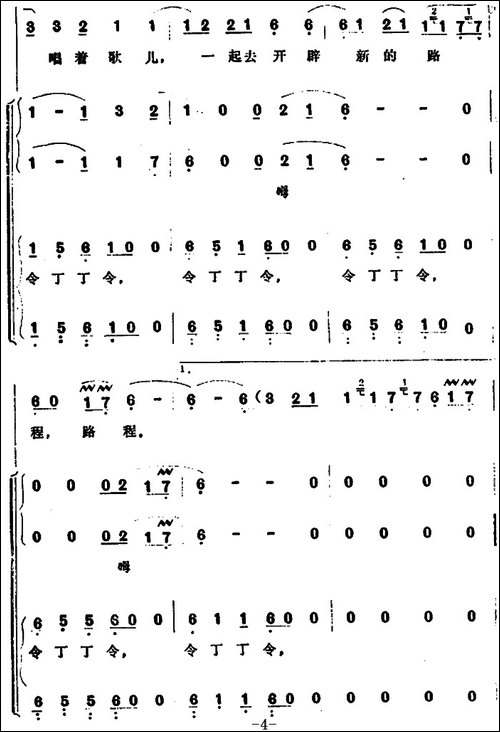 3 3 2 1 1 1 2 2 2 1 6 6 6 1 2 1 1 1 7 7
唱着歌儿，一起去开辟新的路
1 - 1 3 2 1 0 0 2 1 6 - - 0
1 - 1 1 7 6 0 0 2 1 6 - - 0
1 5 6 1 0 0 6 5 1 6 0 0 6 5 6 1 0 0
令丁丁令，令丁丁令，令丁丁令，
1 5 6 1 0 0 6 5 1 6 0 0 6 5 6 1 0 0
1.
6 0 1 7 6 - 6 - 6 (3 2 1 1 1 7 7 6 1 7
程，路程。
0 0 0 2 1 7 6 - - 0 0 0 0 0
0 0 0 2 1 7 6 - - 0 0 0 0 0
6 5 5 6 0 0 6 1 1 6 0 0 0 0 0 0
令丁丁令，令丁丁令，
6 5 5 6 0 0 6 1 1 6 0 0 0 0 0 0
-4-